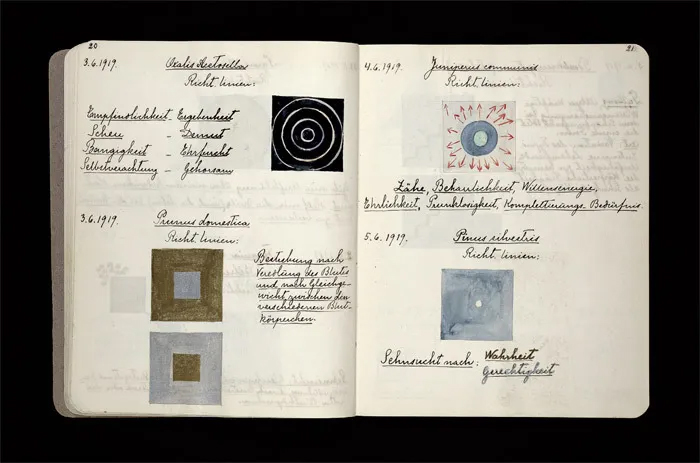 20
3.6.1919. Oxalis Acetosella
Richt. linien:
Empfindlichkeit - Ergebenheit
Scheu - Demut
Bangigkeit - Ehrfurcht
Selbstverachtung - Gehorsam
3.6.1919. Prunus domestica
Richt. linien:
Bestrebung nach
Veredlung des Blutes
und nach Gleichge-
wicht zwischen den
verschiedenen Blut-
körperchen.
21
4.6.1919. Juniperus communis
Richt. linien:
Zähe, Beharrlichkeit, Willensenergie,
Ehrlichkeit, Prunklosigkeit, Komplettierungs-Bedürfnis
5.6.1919. Pinus silvestris
Richt. linien:
Sehnsucht nach: Wahrheit
Gerechtigkeit